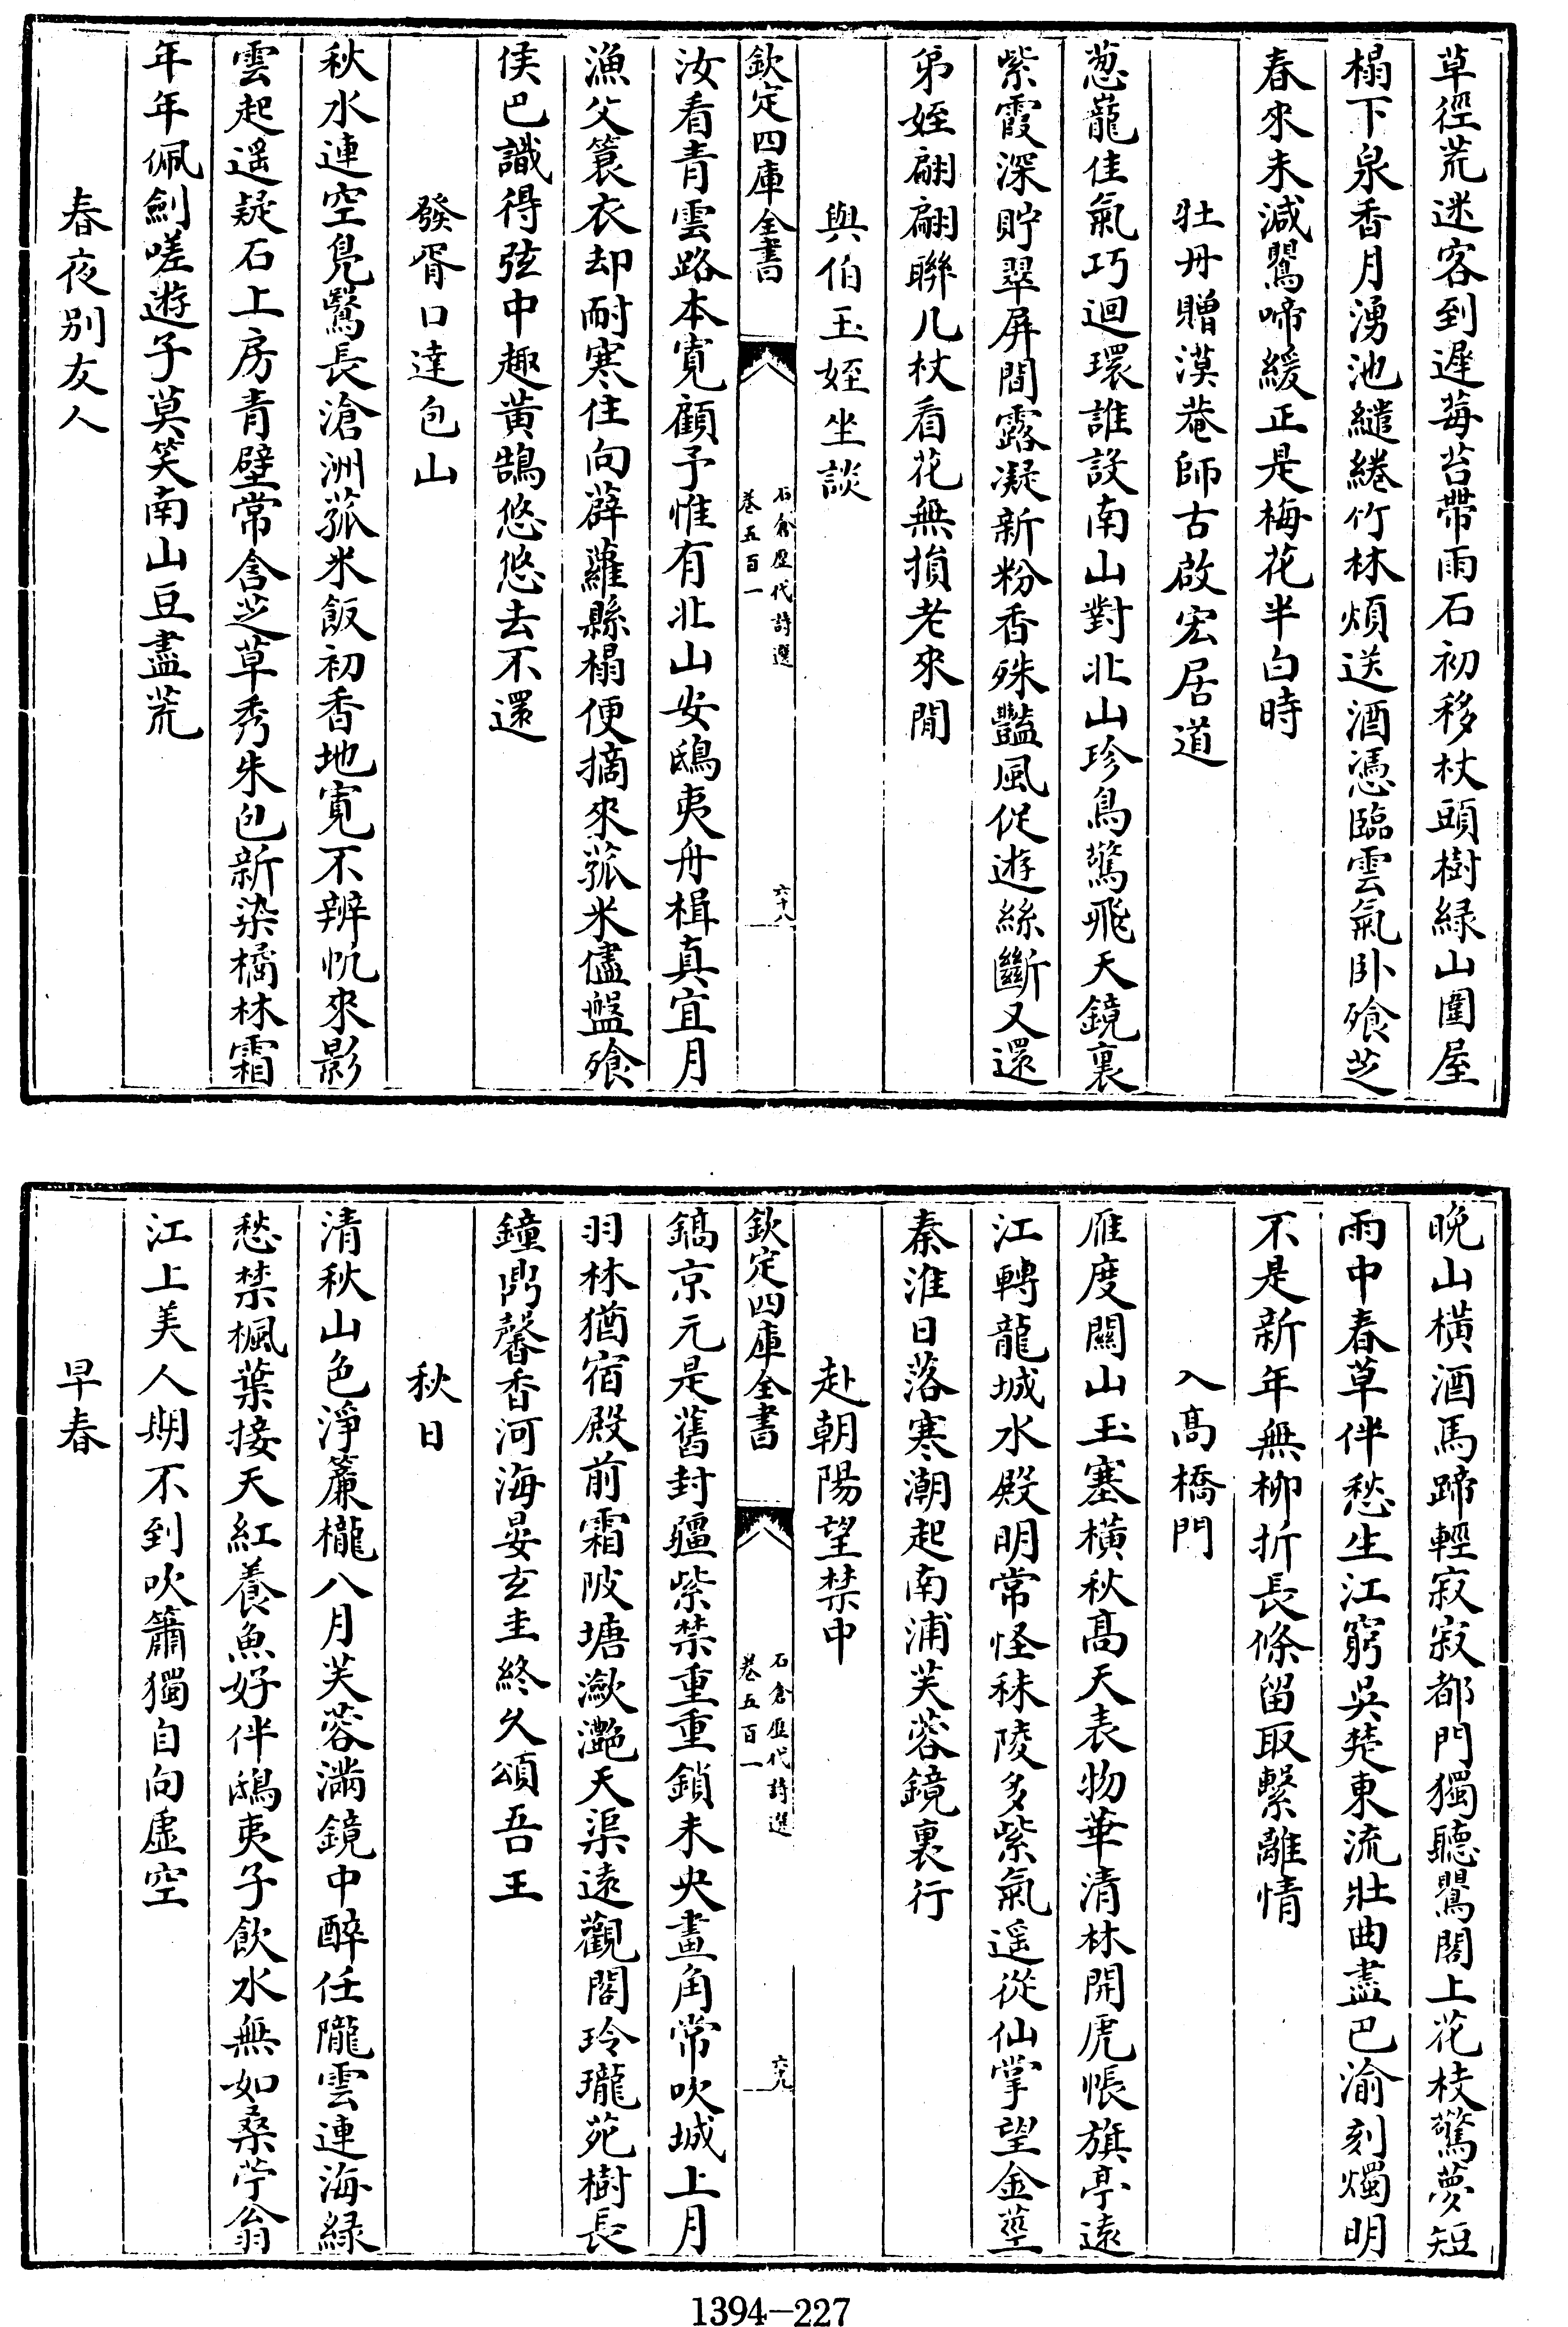 草徑荒迷客到遲莓苔帶雨石初移杖頭樹緑山圍屋
榻下泉香月湧池繾綣竹林煩送酒憑臨雲氣卧飱芝
春來未減鸎啼緩正是梅花半白時
牡丹贈漠菴師古啟宏居道
葱巃佳氣巧迴環誰設南山對北山珍鳥驚飛天鏡裏
紫霞深貯翠屏間露凝新粉香殊豔風促遊絲斷又還
弟姪翩翩聯几杖看花無損老來閒
與伯玉姪坐談
欽定四庫全書
石倉歷代詩選
卷五百一
六十八
汝看青雲路本寛顧予惟有北山安鴟夷舟楫真宜月
漁父簑衣却耐寒住向薜蘿縣榻便摘來菰米儘盤飱
侯巴識得弦中趣黄鵠悠悠去不還
發胥口達包山
秋水連空鳬鷖長滄洲菰米飯初香地寛不辨帆來影
雲起遥疑石上房青壁常含芝草秀朱包新染橘林霜
年年佩劍嗟遊子莫笑南山豆盡荒
春夜别友人
晚山横酒馬蹄輕寂寂都門獨聽鸎閣上花枝驚夢短
雨中春草伴愁生江窮吳楚東流壯曲盡巴渝刻燭明
不是新年無柳折長條留取繫離情
入髙橋門
雁度關山玉塞横秋髙天表物華清林開虎帳旗亭逺
江轉龍城水殿明常怪秣陵多紫氣遥從仙掌望金莖
秦淮日落寒潮起南浦芙蓉鏡裏行
赴朝陽望禁中
欽定四庫全書
石倉歷代詩選
卷五百一
六十九
鎬京元是舊封疆紫禁重重鎖未央畫角常吹城上月
羽林猶宿殿前霜陂塘瀲灔天渠逺觀閣玲瓏苑樹長
鐘鼎馨香河海晏玄圭終久頌吾王
秋日
清秋山色淨簾櫳八月芙蓉滿鏡中醉任隴雲連海緑
愁禁楓葉接天紅養魚好伴鴟夷子飲水無如桑苧翁
江上美人期不到吹簫獨自向虛空
早春
1394-227